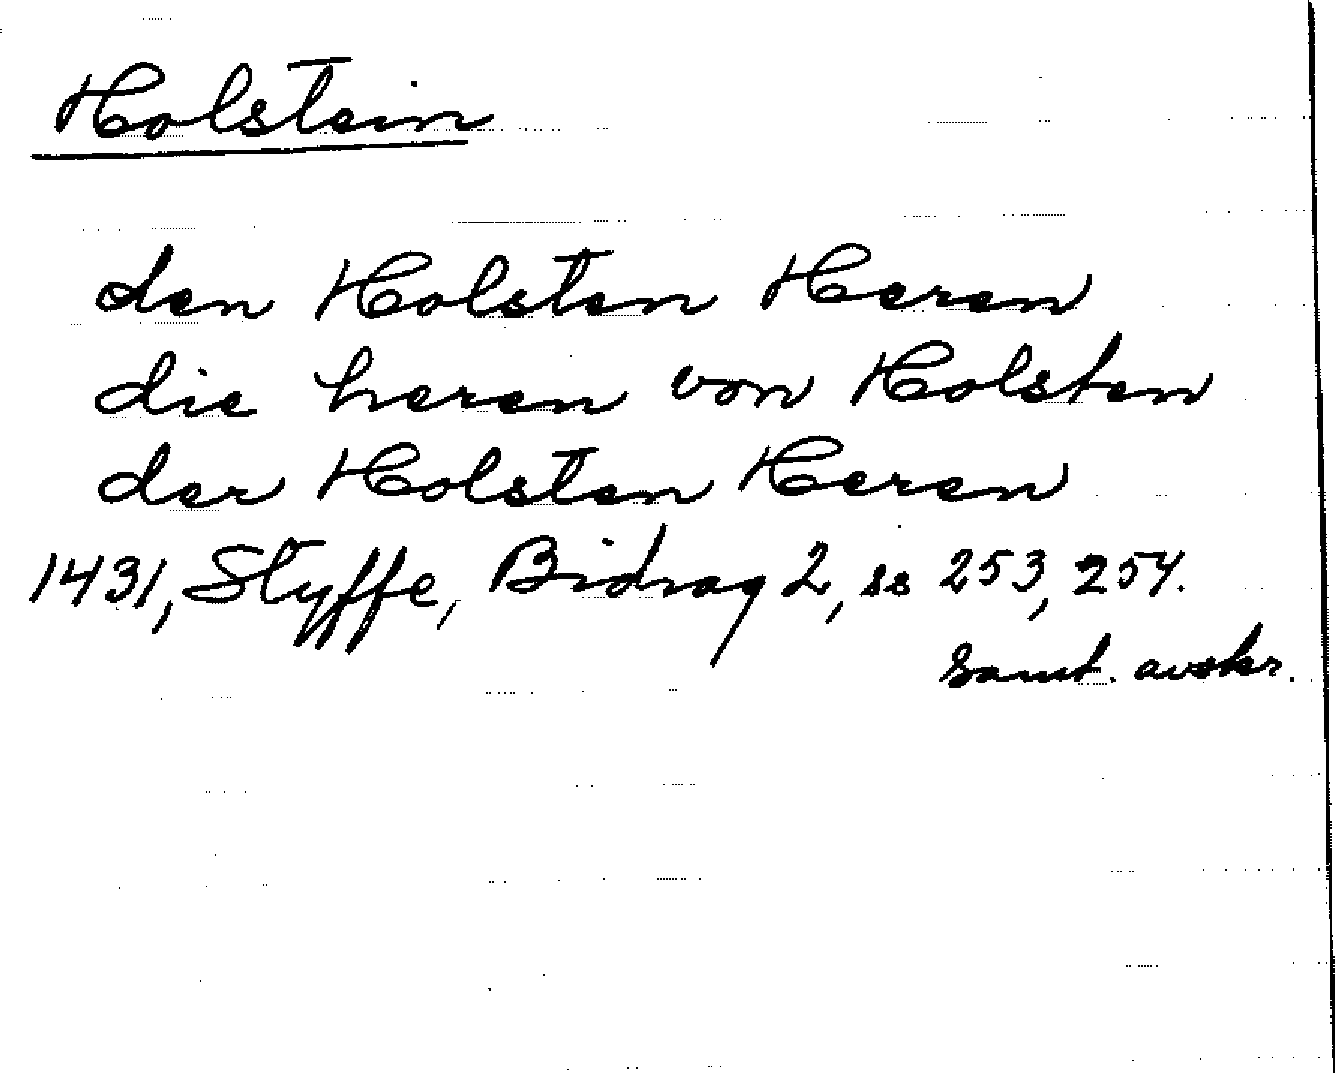 Holstein
den Holsten Heren
die heren von Holsten
der Holsten Heren
1431, Styffe, Bidrag 2, ss 253, 254.
samt. avskr.